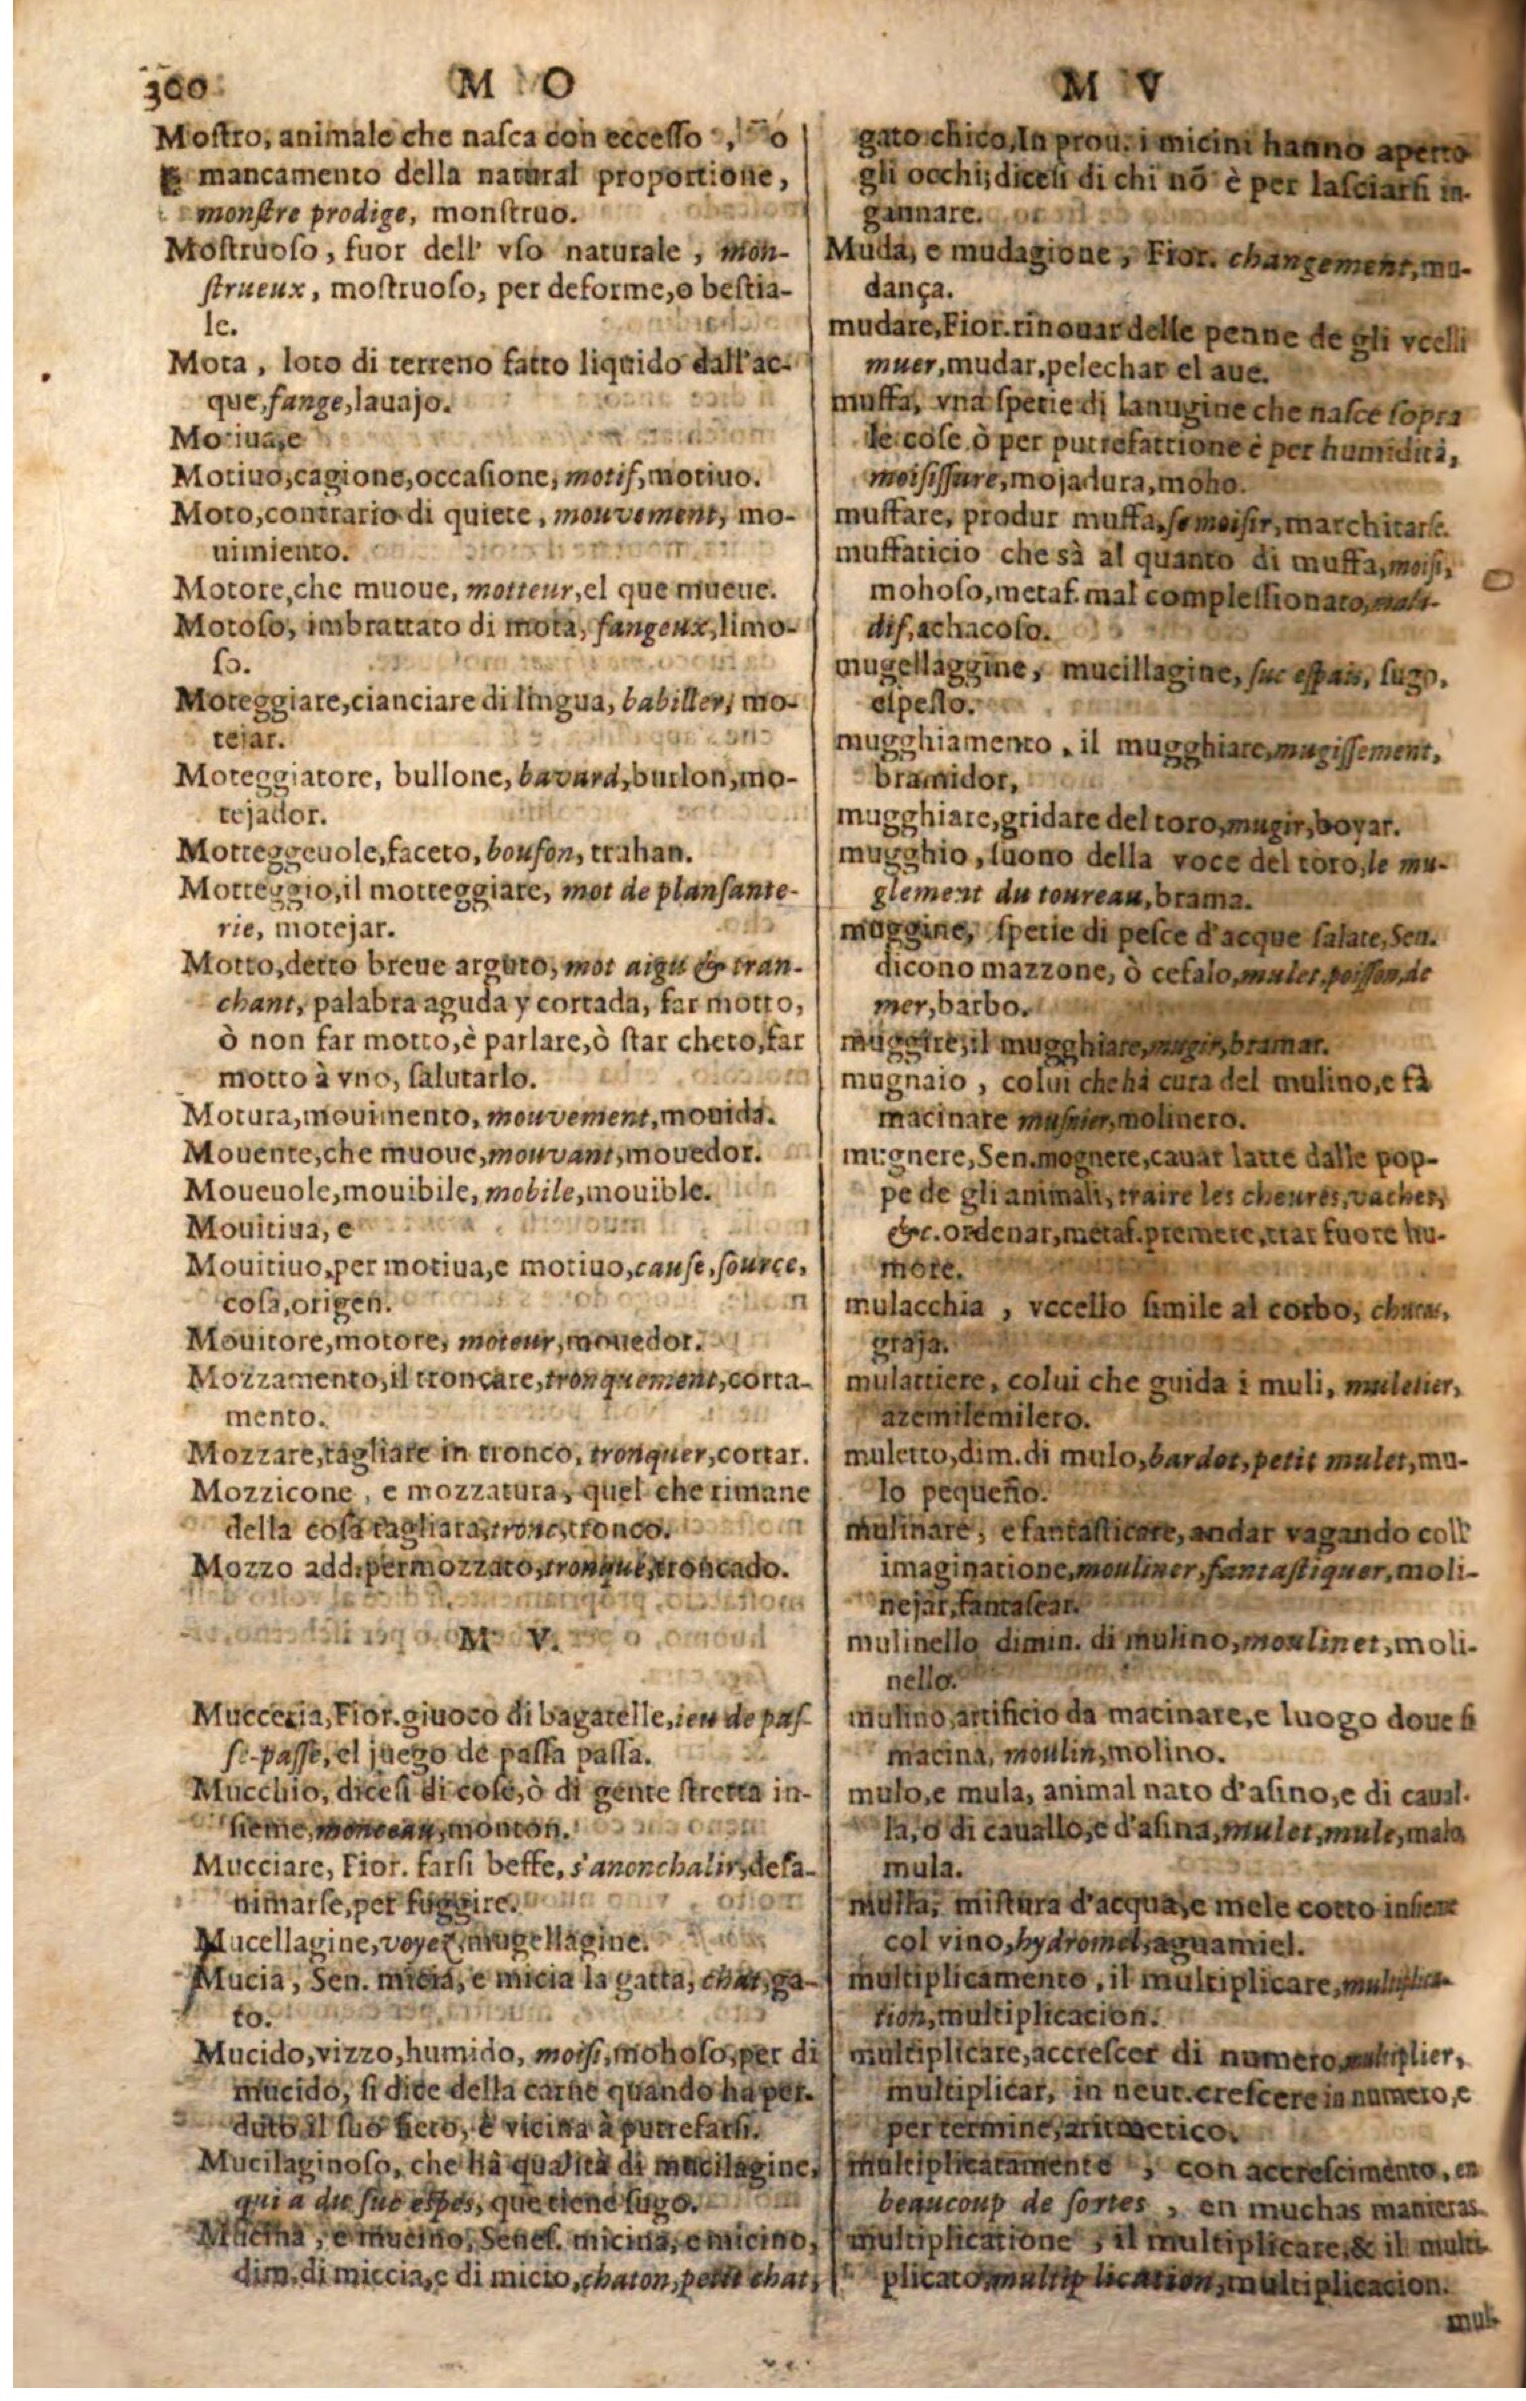 360 M O
Mostro, animale che nasca con eccesso, o
mancamento della natural proportione,
monstre prodige, monstruo.
Mostruoso, fuor dell' vso naturale, mon-
strueux, mostruoso, per deforme, o bestia-
le.
Mota, loto di terreno fatto liquido dall'ac-
que, fange, lauajo.
Motiua, e
Motiuo, cagione, occasione, motif, motiuo.
Moto, contrario di quiete, mouvement, mo-
uimiento.
Motore, che muoue, motteur, el que mueue.
Motoso, imbrattato di mota, fangeux, limo-
so.
Moteggiare, cianciare di lingua, babiller, mo-
tejar.
Moteggiatore, bullone, bavard, burlon, mo-
tejador.
Motteggeuole, faceto, boufon, truhan.
Motteggio, il motteggiare, mot de plansante-
rie, motejar.
Motto, detto breue arguto, mot aigu & tran-
chant, palabra aguda y cortada, far motto,
ò non far motto, è parlare, ò star cheto, far
motto à vno, salutarlo.
Motura, mouimento, mouvement, mouida.
Mouente, che muoue, mouvant, mouedor.
Moueuole, mouibile, mobile, mouible.
Mouitiua, e
Mouitiuo, per motiua, e motiuo, cause, source,
cosa, origen.
Mouitore, motore, moteur, mouedor.
Mozzamento, il troncare, tronquement, corta-
mento.
Mozzare, tagliare in tronco, tronquer, cortar.
Mozzicone, e mozzatura, quel che rimane
della cosa tagliata, tronc, tronco.
Mozzo add. per mozzato, tronqué, troncado.
M V.
Mucceria, Fior. giuoco di bagatelle, ieu de pas-
se-passe, el juego de passa passa.
Mucchio, dicesi di cose, ò di gente stretta in-
sieme, monceau, monton.
Mucciare, Fior. farsi beffe, s'anonchalir, desa-
nimarse, per fuggire.
Mucellagine, voyez, mugellagine.
Mucia, Sen. micia, e micia la gatta, chat, ga-
to.
Mucido, vizzo, humido, moisi, mohoso, per di
mucido, si dice della carne quando ha per-
duto il suo sero, è vicina à putrefarsi.
Mucilaginoso, che hà qualità di mucilagine,
qui a du suc espes, que tiene sugo.
Mucina, e mucino, Senes. micina, e micino,
dim. di miccia, e di micio, chaton, petit chat,
M V
gato chico, In prou. i micini hanno aperto
gli occhi; dicesi di chi nō è per lasciarsi in-
gannare.
Muda, e mudagione, Fior. changement, mu-
dança.
mudare, Fior. rinouar delle penne de gli vcelli
muer, mudar, pelechar el aue.
muffa, vna spetie di lanugine che nasce sopra
le cose ò per putrefattione è per humidità,
moisissure, mojadura, moho.
muffare, produr muffa, se moisir, marchitarse.
muffaticio che sà al quanto di muffa, moisi,
mohoso, metaf. mal complessionato, mala-
dif, achacoso.
mugellaggine, mucillagine, suc espais, sugo,
espesso.
mugghiamento, il mugghiare, mugissement,
bramidor,
mugghiare, gridare del toro, mugir, boyar.
mugghio, suono della voce del toro, le mu-
glement du toureau, brama.
muggine, spetie di pesce d'acque salate, Sen.
dicono mazzone, ò cefalo, mulet, poisson de
mer, barbo.
muggire, il mugghiare, mugir, bramar.
mugnaio, colui che hà cura del mulino, e fà
macinare musnier, molinero.
mugnere, Sen. mognere, cauar latte dalle pop-
pe de gli animali, traire les cheures, vaches,
&c. ordenar, metaf. premere, trar fuore hu-
more.
mulacchia, vccello simile al corbo, chucas,
graja.
mulattiere, colui che guida i muli, muletier,
azemilemilero.
muletto, dim. di mulo, bardot, petit mulet, mu-
lo pequeño.
mulinare, e fantasticare, andar vagando coll'
imaginatione, mouliner, fantastiquer, moli-
nejar, fantasear.
mulinello dimin. di mulino, moulinet, moli-
nello.
mulino, artificio da macinare, e luogo doue si
macina, moulin, molino.
mulo, e mula, animal nato d'asino, e di caual-
la, o di cauallo, e d'asina, mulet, mule, mulo
mula.
mulsa, mistura d'acqua, e mele cotto insieme
col vino, hydromel, aguamiel.
multiplicamento, il multiplicare, multiplica-
tion, multiplicacion.
multiplicare, accrescer di numero, multiplier,
multiplicar, in neut. crescere in numero, e
per termine, aritmetico.
multiplicatamente, con accrescimento, en
beaucoup de sortes, en muchas manieras
multiplicatione, il multiplicare, & il multi-
plicato, multiplication, multiplicacion.
mul-